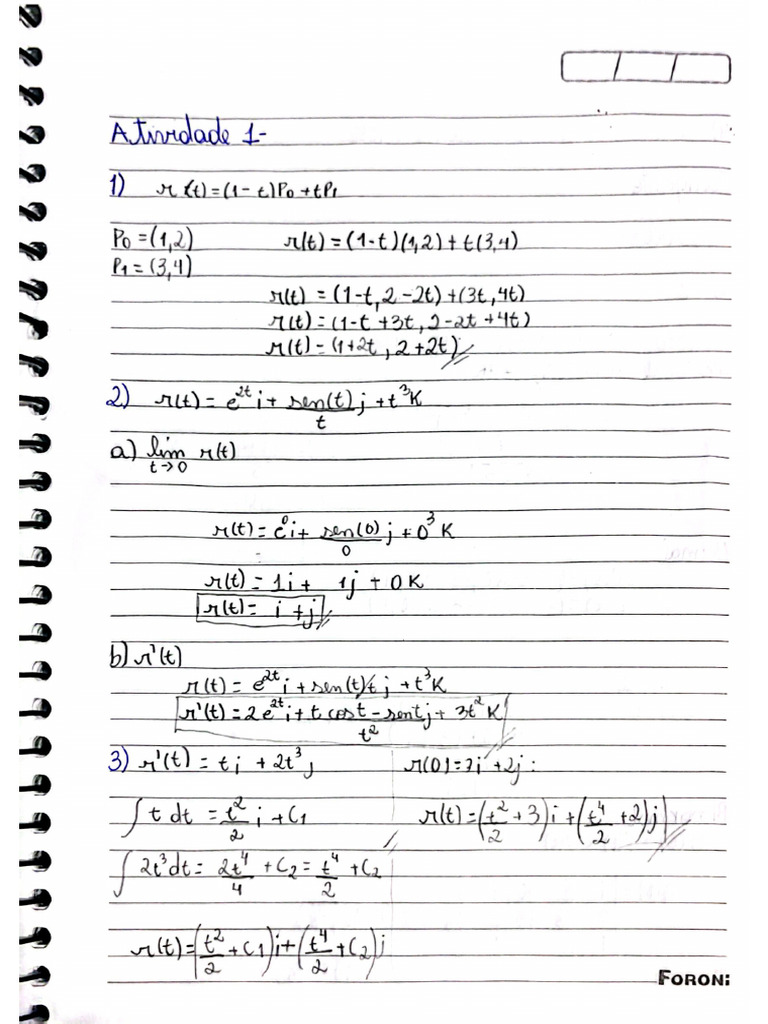 Atividade 1-
1) r(t)=(1-t)P₀+tP₁
P₀=(1,2) r(t)=(1-t)(1,2)+t(3,4)
P₁=(3,4)
r(t)=(1-t,2-2t)+(3t,4t)
r(t)=(1-t+3t,2-2t+4t)
r(t)=(1+2t,2+2t)//
2) r(t)=e^{2t}i+sen(t)/t j+t³K
a) lim t→0 r(t)
r(t)=e⁰i+sen(0)/0 j+0³K
r(t)=1i+1j+0K
r(t)=i+j//
b) r'(t)
r(t)=e^{2t}i+sen(t)/t j+t³K
r'(t)=2e^{2t}i+t cost-sent/t² j+3t²K
3) r'(t)=ti+2t³j r(0)=3i+2j:
∫t dt=t²/2 i+C1 r(t)=(t²/2+3)i+(t⁴/2+2)j//
∫2t³dt=2t⁴/4+C2=t⁴/2+C2
r(t)=(t²/2+C1)i+(t⁴/2+C2)j
FORONI